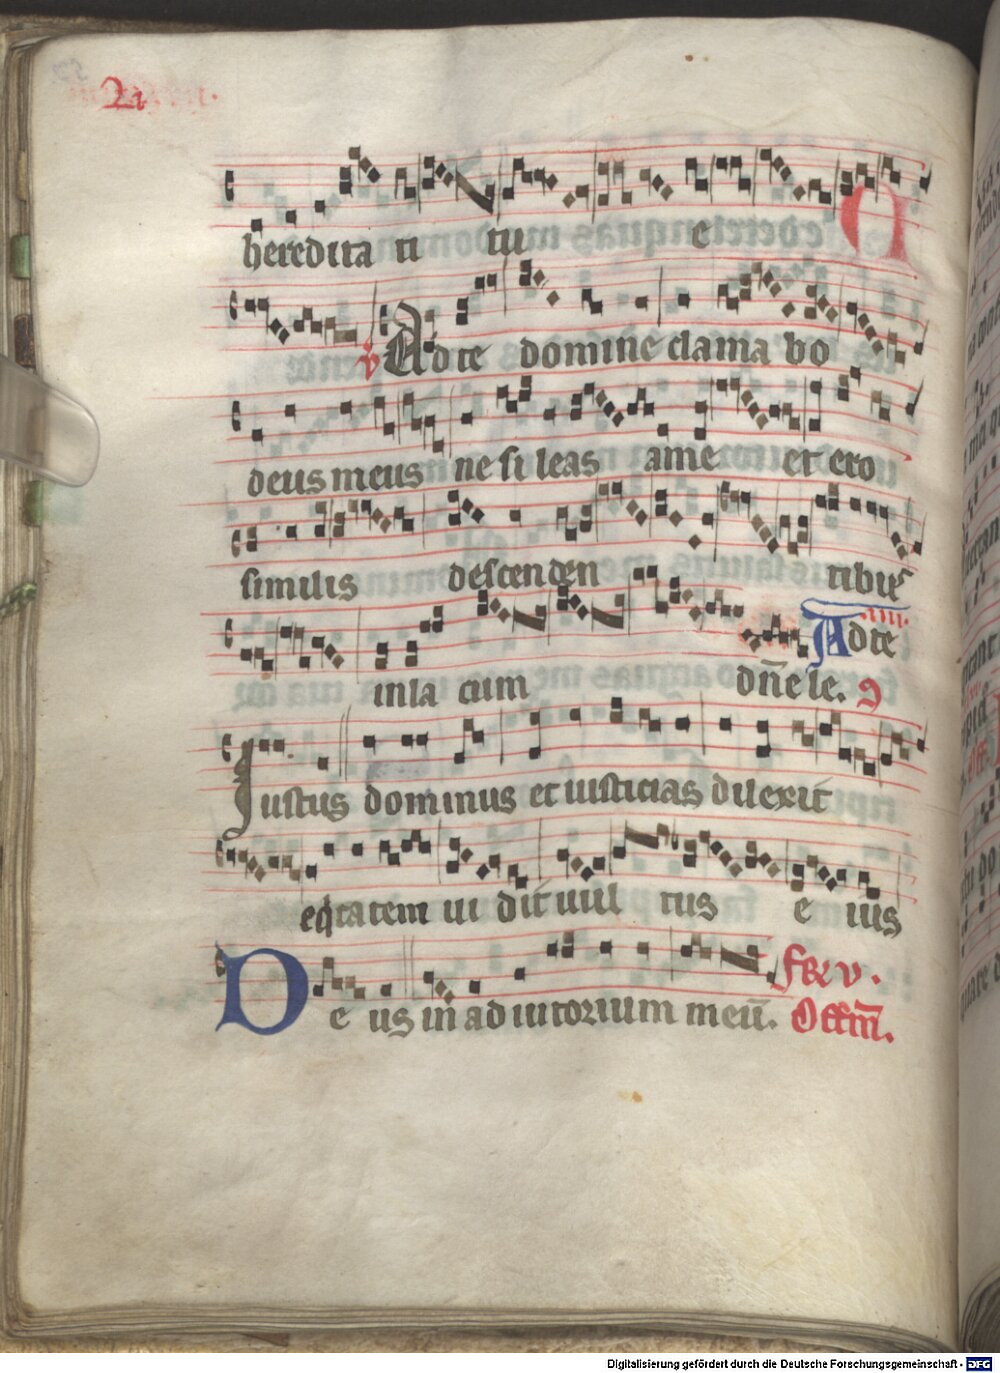 2a
heredita ti tu e
℣ Ad te domine clama bo
deus meus ne si leas ame et ero
similis descenden tibus
Ad te
in la cum dn̄e le.
Iustus dominus et iusticias dilexit
eq̄tatem ui dit uul tus e ius
D e us in ad iutorium meū. fer v.
Offm̄.
Digitalisierung gefördert durch die Deutsche Forschungsgemeinschaft - DFG